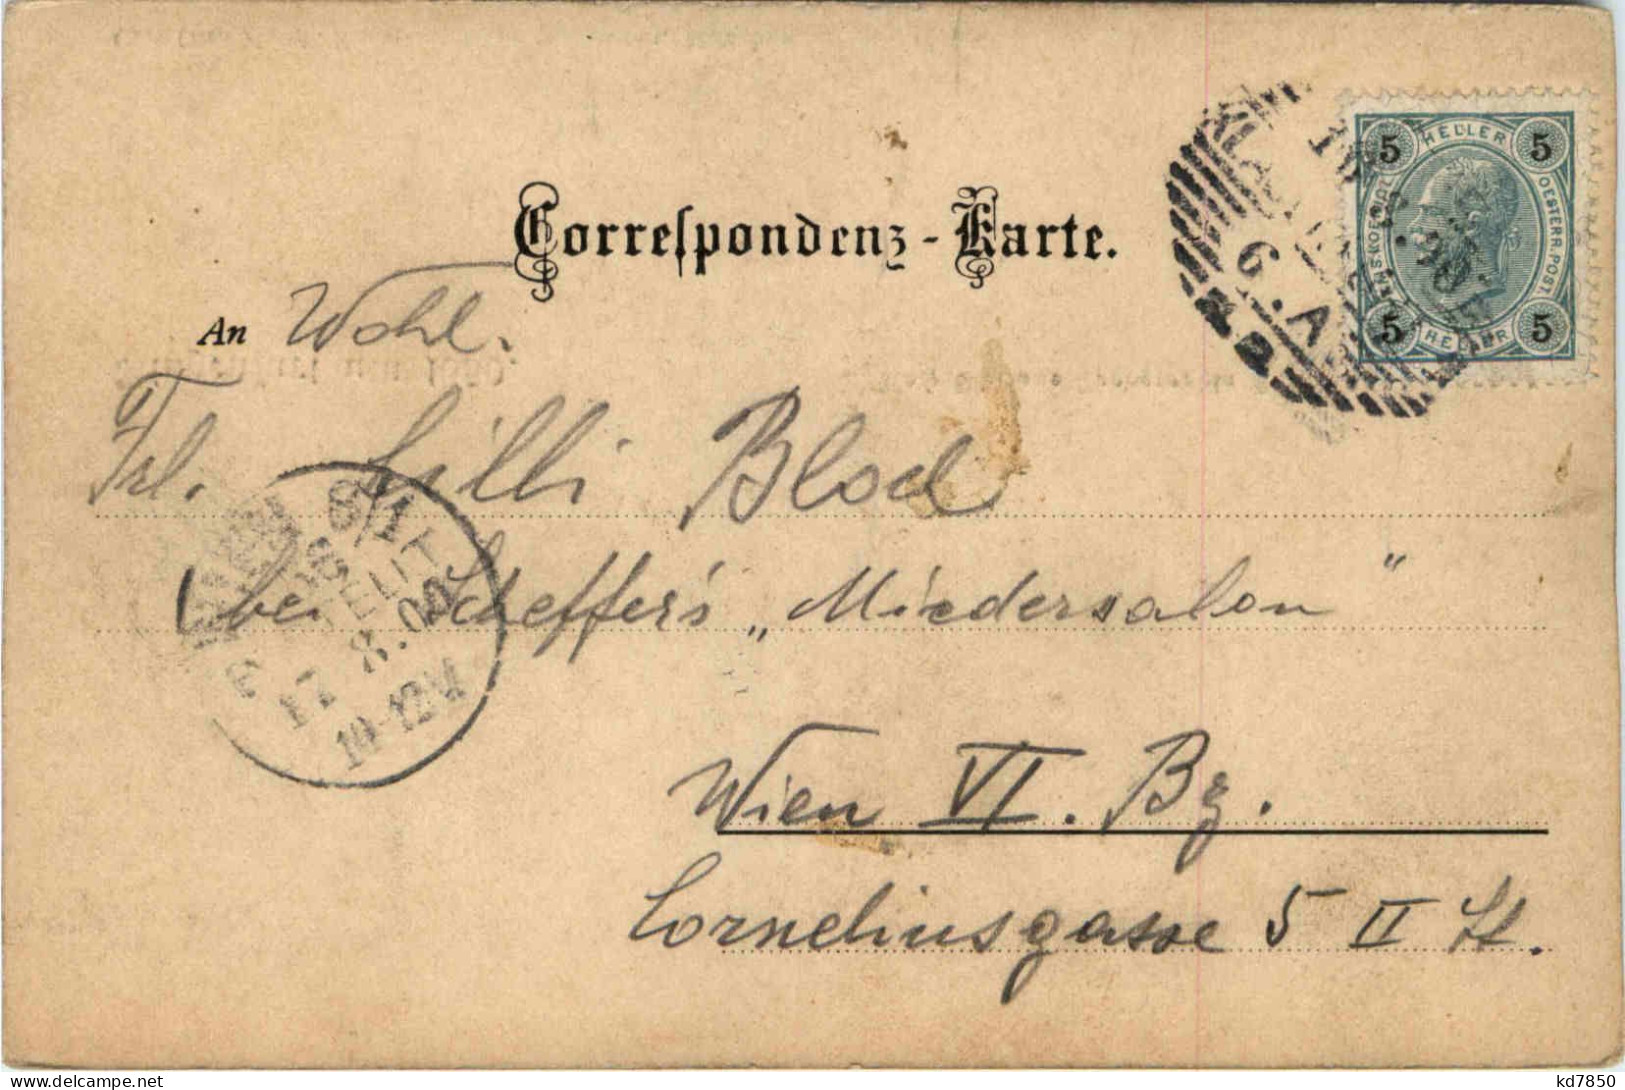 Correspondenz-Karte.
5 HELLER 5
OESTERR. POST.
5 HELLER 5
6. A
An Wohl.
Frl. Lilli Blod
bei Scheffer's „Miedersalon"
WIEN 6/1
BESTELLT
17 8.00
10-12 V
Wien VI. Bz.
Corneliusgasse 5 II St.
kd7850